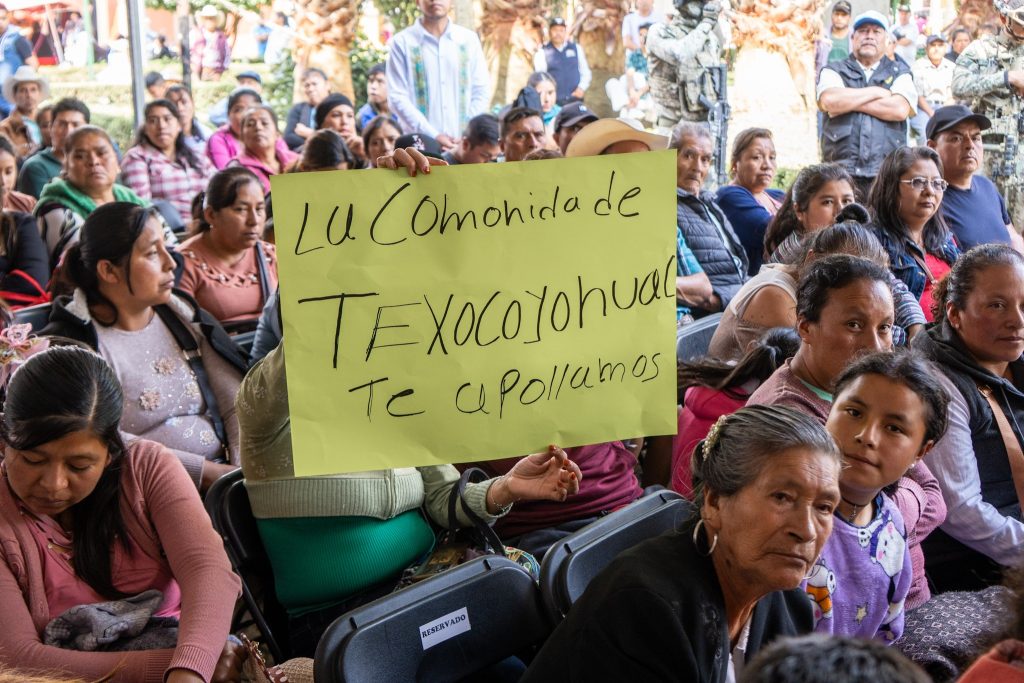 La Comonida de
TEXOCOYOHUAC
Te apollamos
RESERVADO